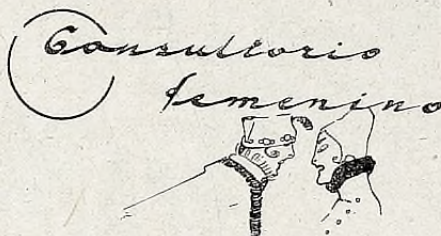 Consultorio
femenino